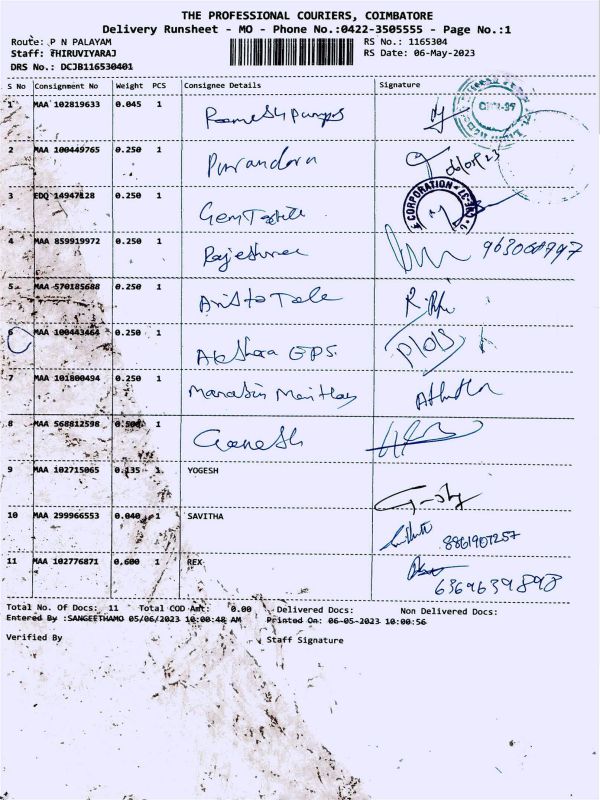 THE PROFESSIONAL COURIERS, COIMBATORE
Delivery Runsheet - MO - Phone No.:0422-3505555 - Page No.:1
Route: P N PALAYAM RS No.: 1165304
Staff: THIRUVIYARAJ RS Date: 06-May-2023
DRS No.: DCJB116530401
S No Consignment No Weight PCS Consignee Details Signature
1 MAA 102819633 0.045 1 Ramesh Pumps
2 MAA 100449765 0.250 1 06/05/23
3 EDQ 14947128 0.250 1 Gem Textile CORPORATION
4 MAA 859919972 0.250 1
5 MAA 570185688 0.250 1 Aristo Tale
6 MAA 100443464 0.250 1 Akshara EPS.
7 MAA 101800494 0.250 1
8 MAA 568812598 0.500 1 Ganesh
9 MAA 102715065 0.135 1 YOGESH
10 MAA 299966553 0.040 1 SAVITHA 8861907257
11 MAA 102776871 0.600 1 REX 6369639898
Total No. Of Docs: 11 Total COD Amt: 0.00 Delivered Docs: Non Delivered Docs:
Entered By :SANGEETHAMO 05/06/2023 10:00:48 AM Printed On: 06-05-2023 10:00:56
Verified By Staff Signature